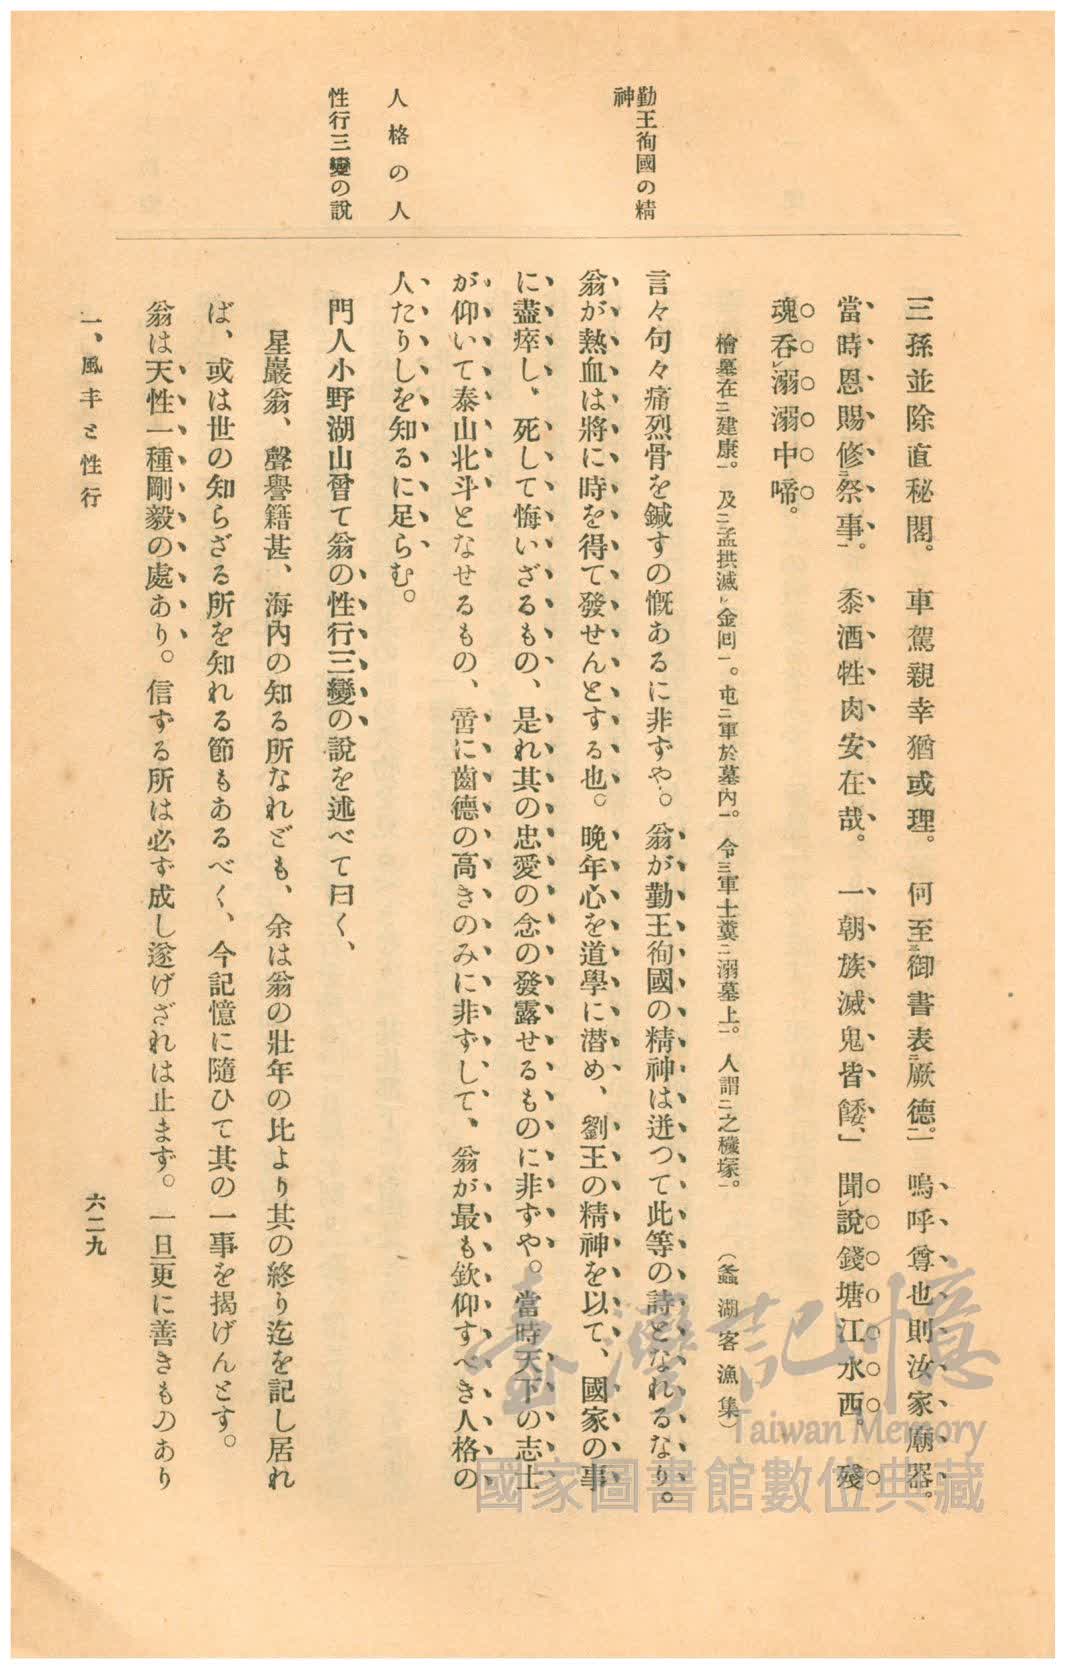 勤王徇國の精
神
人格の人
性行三變の說
三孫並除直秘閣。車駕親幸猶或理。何至三御書表二厥德一。嗚呼尊也則汝家廟器。
當時恩賜修二祭事一。黍酒牲肉安在哉。一朝族滅鬼皆餧、聞レ說錢塘江水西。殘
魂吞レ溺溺中啼。
檜墓在二建康一。及二孟拱滅レ金囘一。屯二軍於墓內一。令三軍士糞二溺墓上一。人謂二之穢塚一。(蠡湖客漁集)
言々句々痛烈骨を鍼すの慨あるに非ずや。翁が勤王徇國の精神は迸つて此等の詩となれるなり。
翁が熱血は將に時を得て發せんとする也。晚年心を道學に潛め、劉王の精神を以て、國家の事
に盡瘁し、死して悔いざるもの、是れ其の忠愛の念の發露せるものに非ずや。當時天下の志士
が仰いて泰山北斗となせるもの、啻に齒德の高きのみに非ずして、翁が最も欽仰すべき人格の
人たりしを知るに足らむ。
門人小野湖山嘗て翁の性行三變の說を述べて曰く、
星巖翁、聲譽籍甚、海內の知る所なれども、余は翁の壯年の比より其の終り迄を記し居れ
ば、或は世の知らざる所を知れる節もあるべく、今記憶に隨ひて其の一事を揭げんとす。
翁は天性一種剛毅の處あり。信ずる所は必ず成し遂げざれは止まず。一旦更に善きものあり
一、風丰と性行
六二九
臺灣記憶
Taiwan Memory
國家圖書館數位典藏